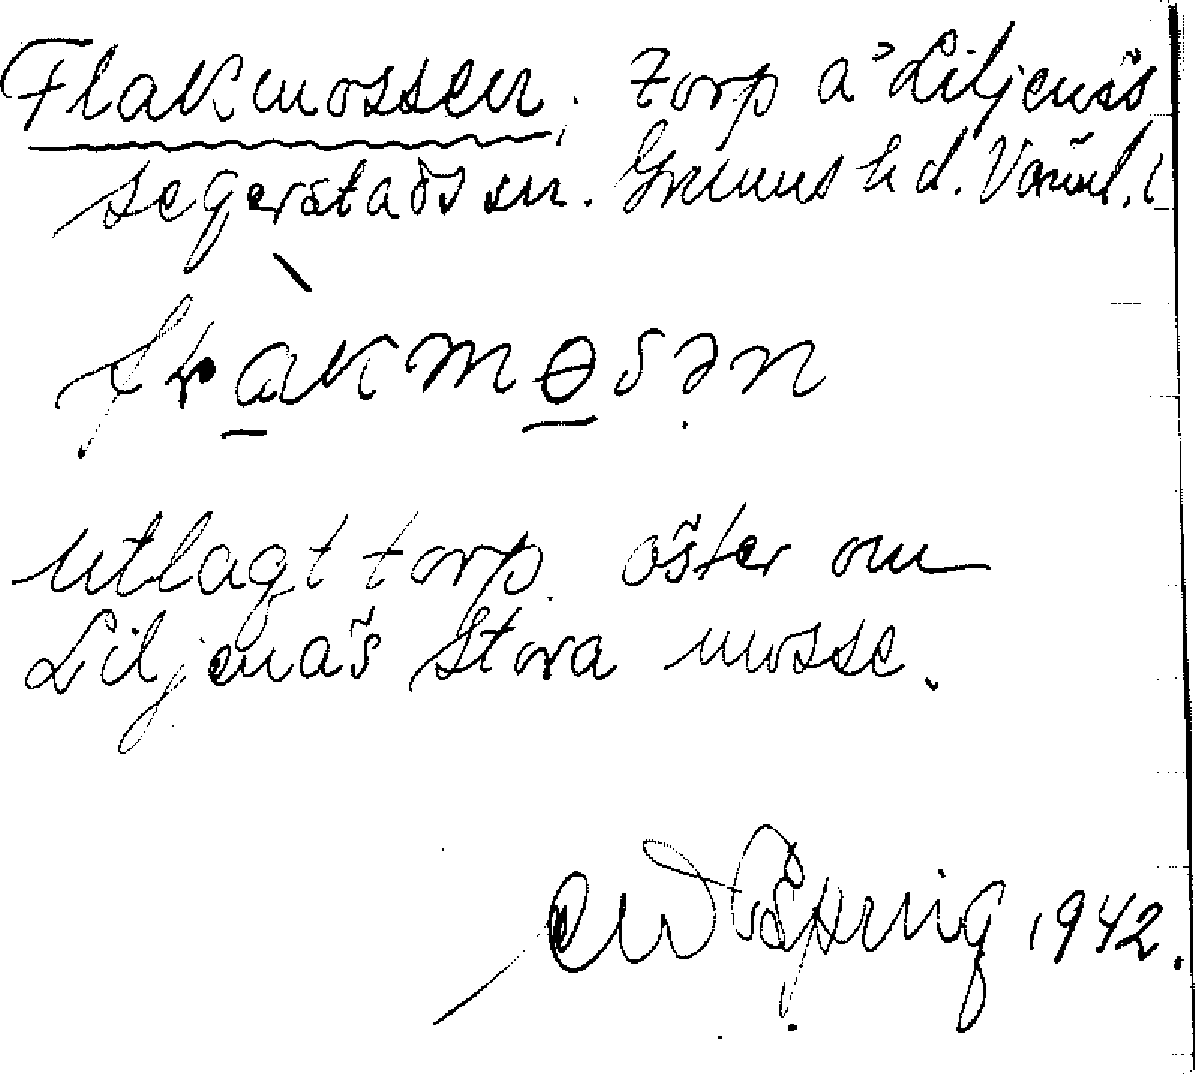 Flakmossen. torp å Liljenäs
segerstads sn. Grums hd. Värml. l
utlagt torp. öster om
Liljenäs Stora mosse.
1942.